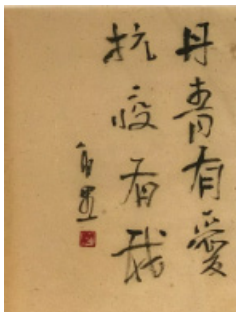 丹青有愛
抗疫有我